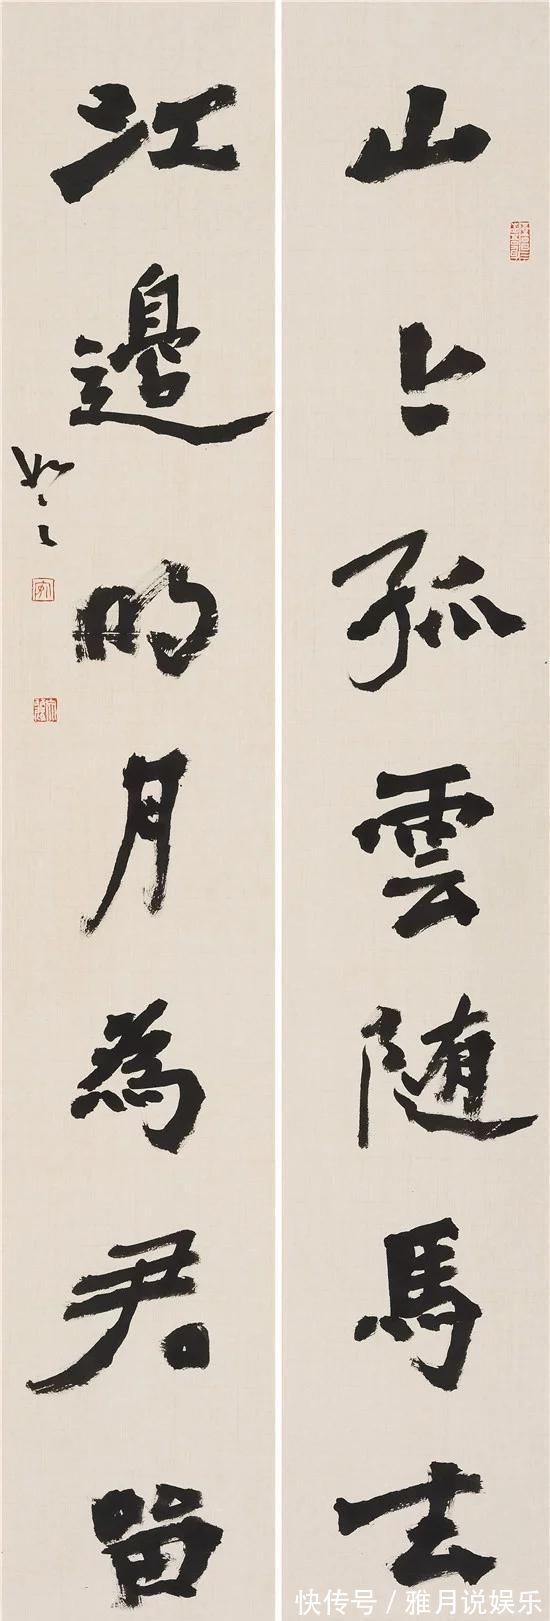 山上孤雲随馬去
江邊明月為君留
快传号/雅月说娱乐